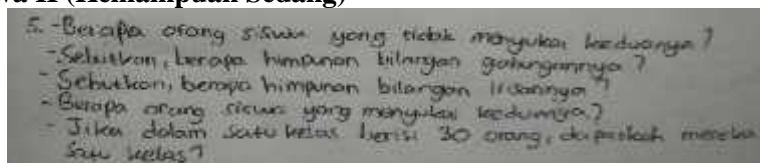 va II (Kemampuan Sedang)
5. - Berapa orang siswa yang tidak menyukai keduanya?
- Sebutkan, berapa himpunan bilangan gabungannya?
- Sebutkan, berapa himpunan bilangan irisannya?
- Berapa orang siswa yang menyukai keduanya?
- Jika dalam satu kelas berisi 30 orang, dapatkah mereka
satu kelas?